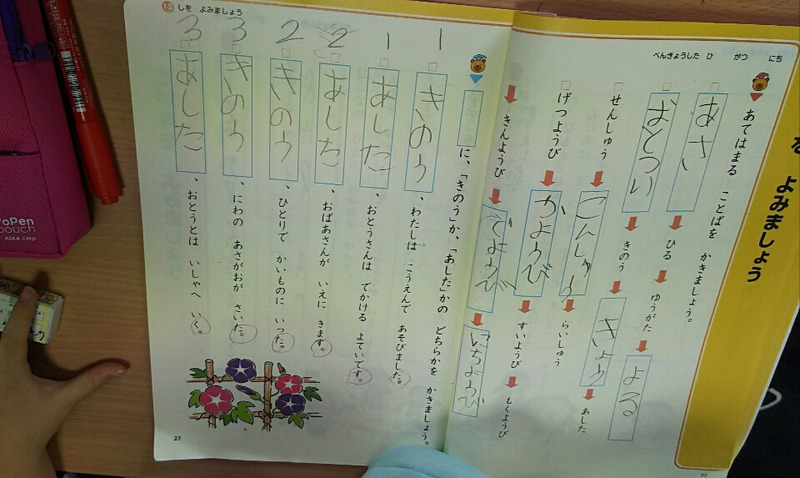 べんきょうした ひ がつ にち
を よみましょう
あてはまる ことばを かきましょう。
あさ ひる ゆうがた よる
おとつい きのう きょう あした
せんしゅう こんしゅう らいしゅう
げつようび かようび すいようび もくようび
きんようび どようび にちようび
しを よみましょう
に、「きのう」か、「あした」かの どちらかを かきましょう。
1 きのう、わたしは こうえんで あそびました。
1 あした、おとうさんは でかける よていです。
2 あした、おばあさんが いえに きます。
2 きのう、ひとりで かいものに いった。
3 きのう、にわの あさがおが さいた。
3 あした、おとうとは いしゃへ いく。
27
oPen
pouch
ASKA corp.